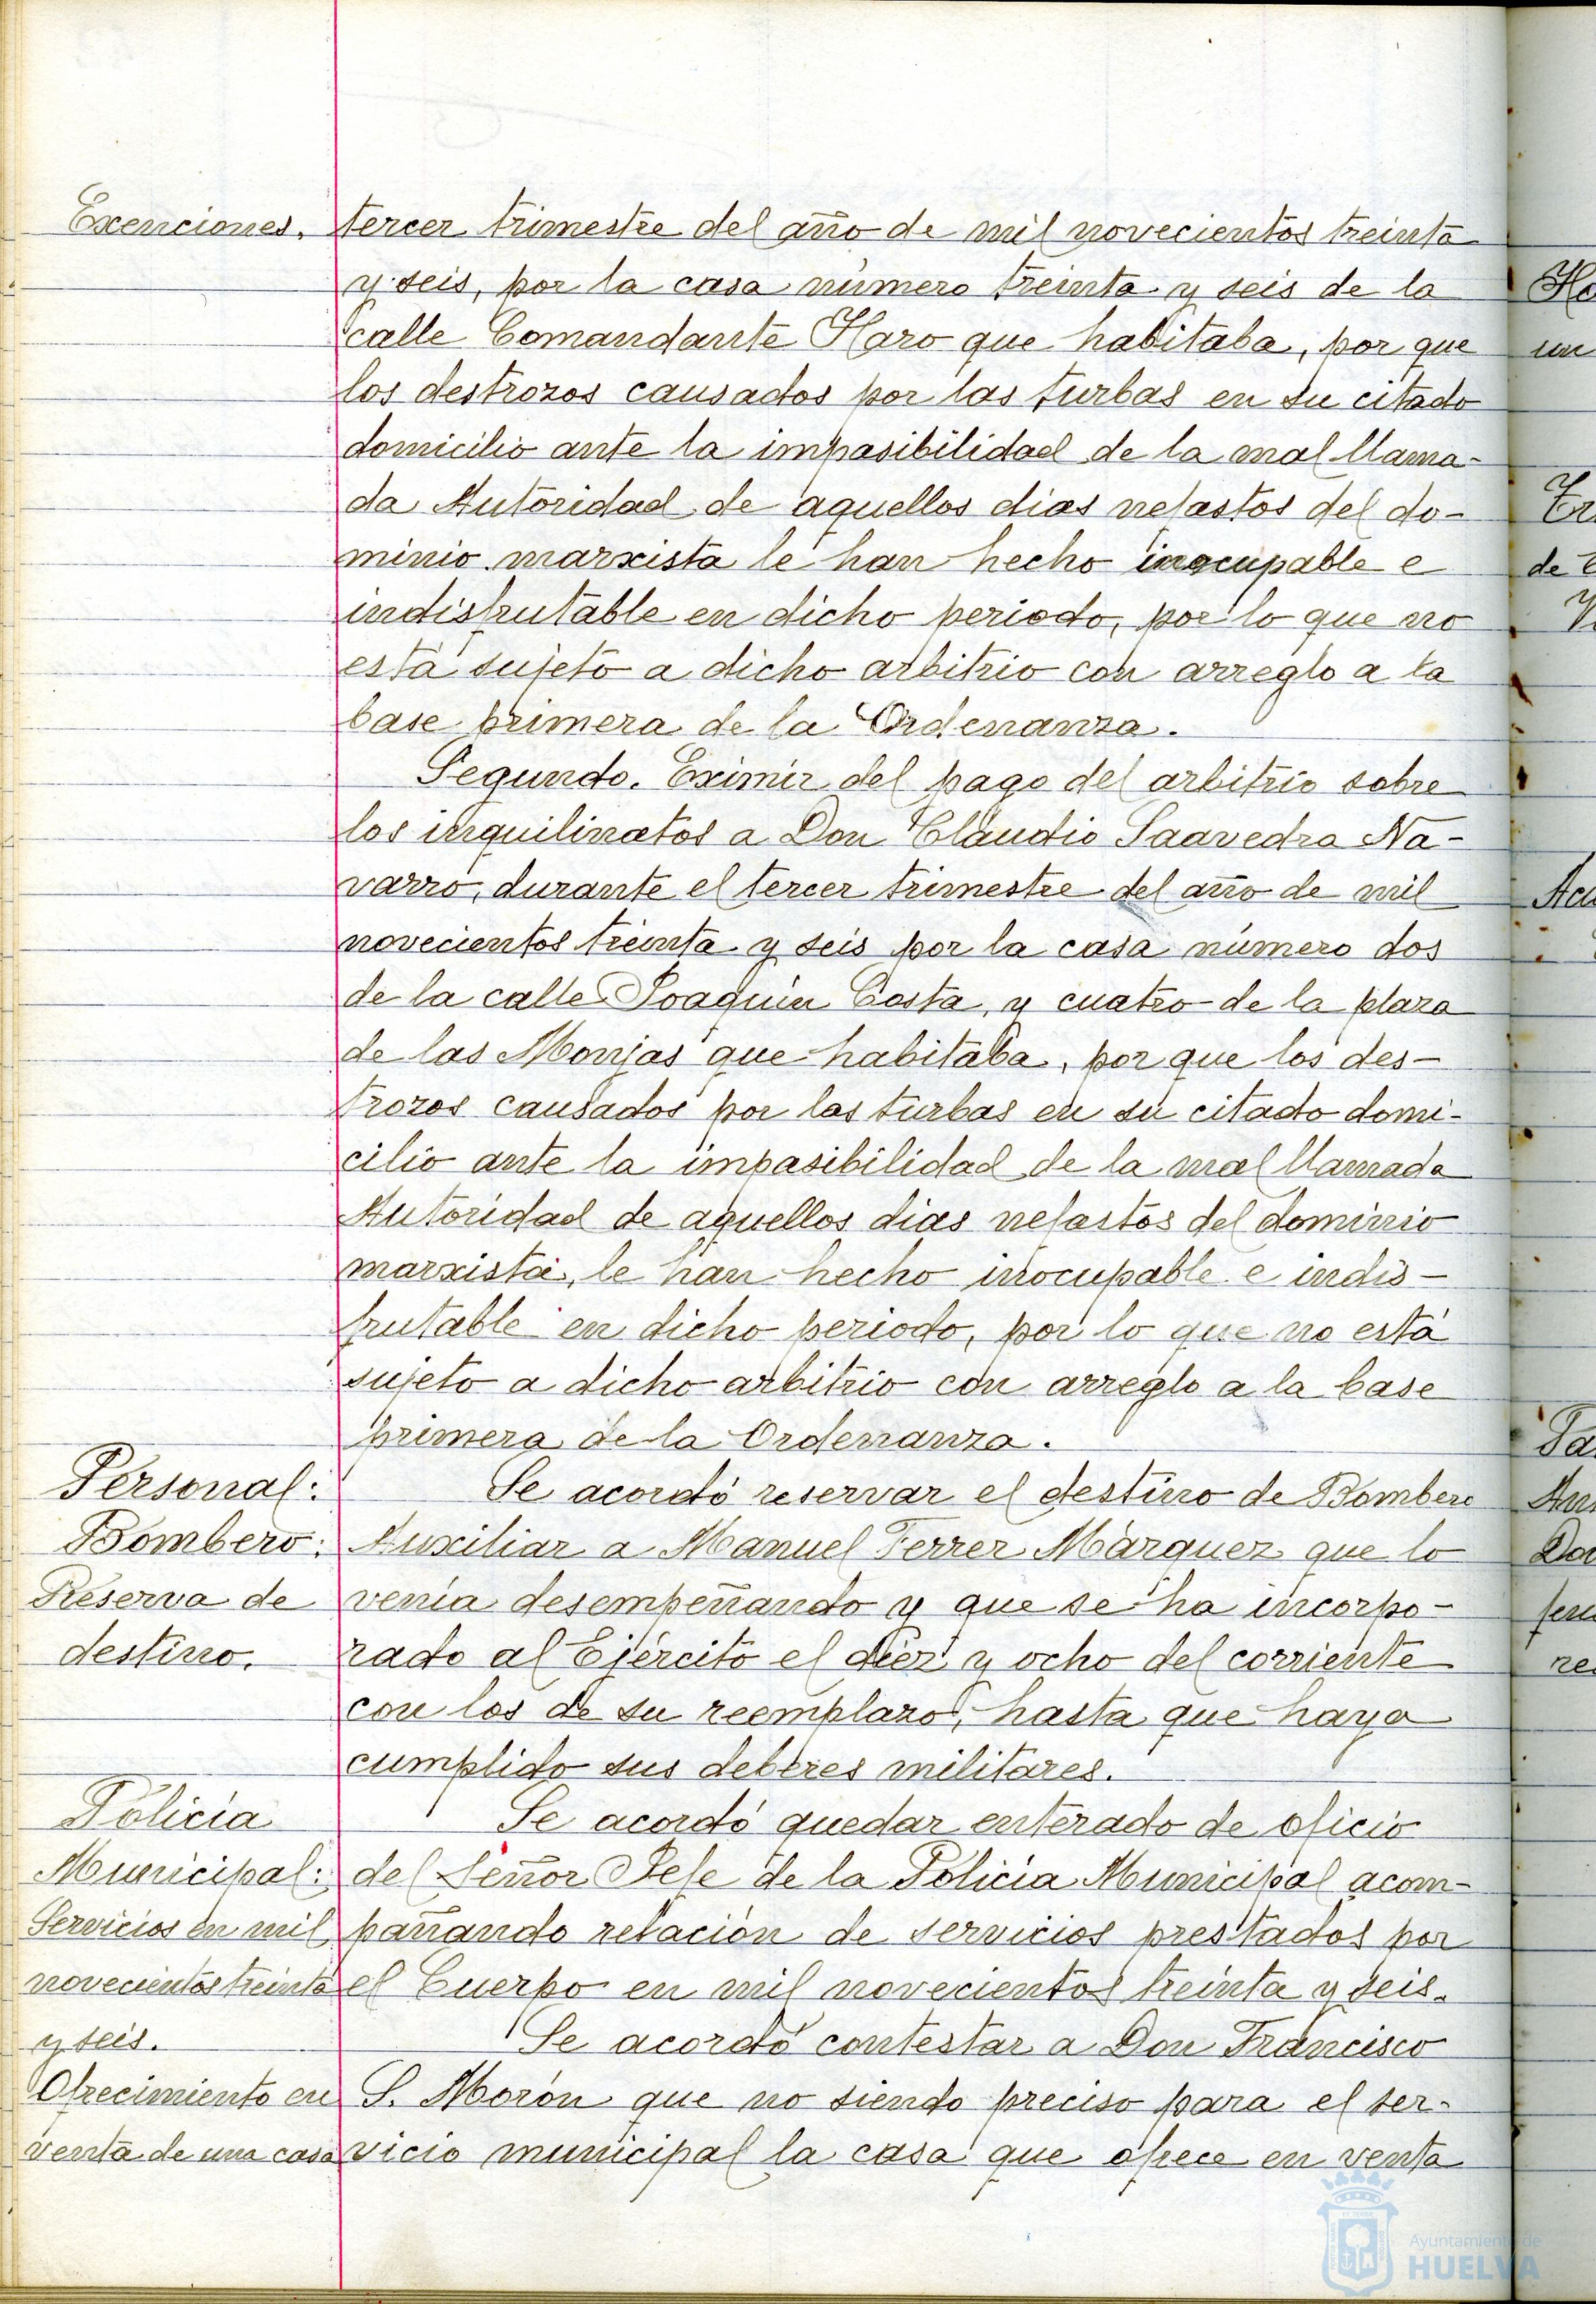 Exenciones.
tercer trimestre del año de mil novecientos treinta
y seis, por la casa número treinta y seis de la
calle Comandante Haro que habitaba, por que
los destrozos causados por las turbas en su citado
domicilio ante la impasibilidad de la mal llama-
da Autoridad de aquellos dias nefastos del do-
minio marxista le han hecho inocupable e
indisfrutable en dicho periodo, por lo que no
está sujeto a dicho arbitrio con arreglo a la
base primera de la Ordenanza.
Segundo. Eximir del pago del arbitrio sobre
los inquilinatos a Don Claudio Saavedra Na-
varro, durante el tercer trimestre del año de mil
novecientos treinta y seis por la casa número dos
de la calle Joaquin Costa, y cuatro de la plaza
de las Monjas que habitaba, por que los des-
trozos causados por las turbas en su citado domi-
cilio ante la impasibilidad de la mal llamada
Autoridad de aquellos dias nefastos del dominio
marxista, le han hecho inocupable e indis-
frutable en dicho periodo, por lo que no está
sujeto a dicho arbitrio con arreglo a la base
primera de la Ordenanza.
Personal:
Bombero:
Reserva de
destino.
Se acordó reservar el destino de Bombero
Auxiliar a Manuel Ferrer Márquez que lo
venía desempeñando y que se ha incorpo-
rado al Ejército el diez y ocho del corriente
con los de su reemplazo, hasta que haya
cumplido sus deberes militares.
Policía
Municipal:
Servicios en mil
novecientos treinta
y seis.
Se acordó quedar enterado de oficio
del Señor Jefe de la Policía Municipal acom-
pañando relación de servicios prestados por
el Cuerpo en mil novecientos treinta y seis.
Ofrecimiento en
venta de una casa
Se acordó contestar a Don Francisco
S. Morón que no siendo preciso para el ser-
vicio municipal la casa que ofrece en venta
Ayuntamiento de
HUELVA